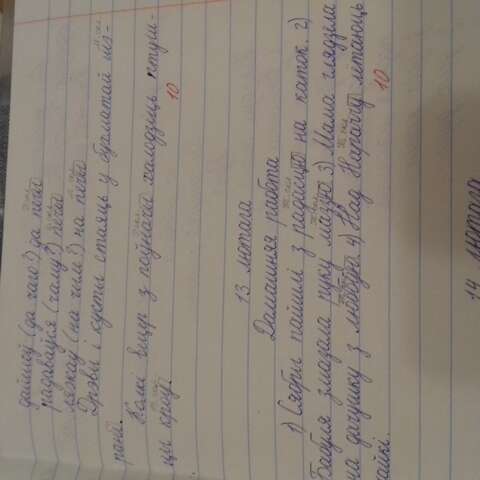 дайшоў (да чаго?) да печы
радаваўся (чаму?) печы
ляжаў (на чым?) на печы
Дрэвы і кусты стаяць у бухматай шэ-
рані.
Колкі вецер з поўначы халодзіць птуш-
цы кроў.
10
13 лютага
Дамашняя работа
1) Сябры пайшлі з радасцю на каток. 2)
Бабуля змазала руку маззю. 3) Мама глядзела
на дачушку з любоўю. 4) Над Нараччу лётаюць
чайкі.
10
14 лютага